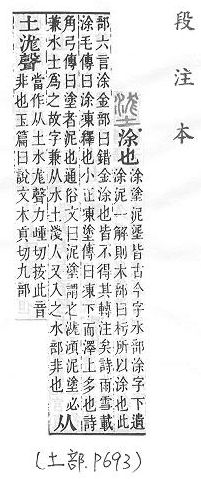 段注本
涂也
涂塗泥塗皆古今字水部涂字下遺
涂泥一解則木部曰杇所㠯涂也此
部六言涂金部曰錯金涂也皆不得其轉注矣詩雨雪載
涂毛傳曰涂凍釋也小正凍塗傳曰凍下而澤上多也詩
角弓傳曰塗者泥也通俗文曰泥塗謂之浝澒泥塗必
兼水土爲之故字兼从水土淺人又入之水部非也
从
土浝聲
當作从土水尨聲力踵切按此音
非也玉篇曰說文木貢切九部
(土部.P693)